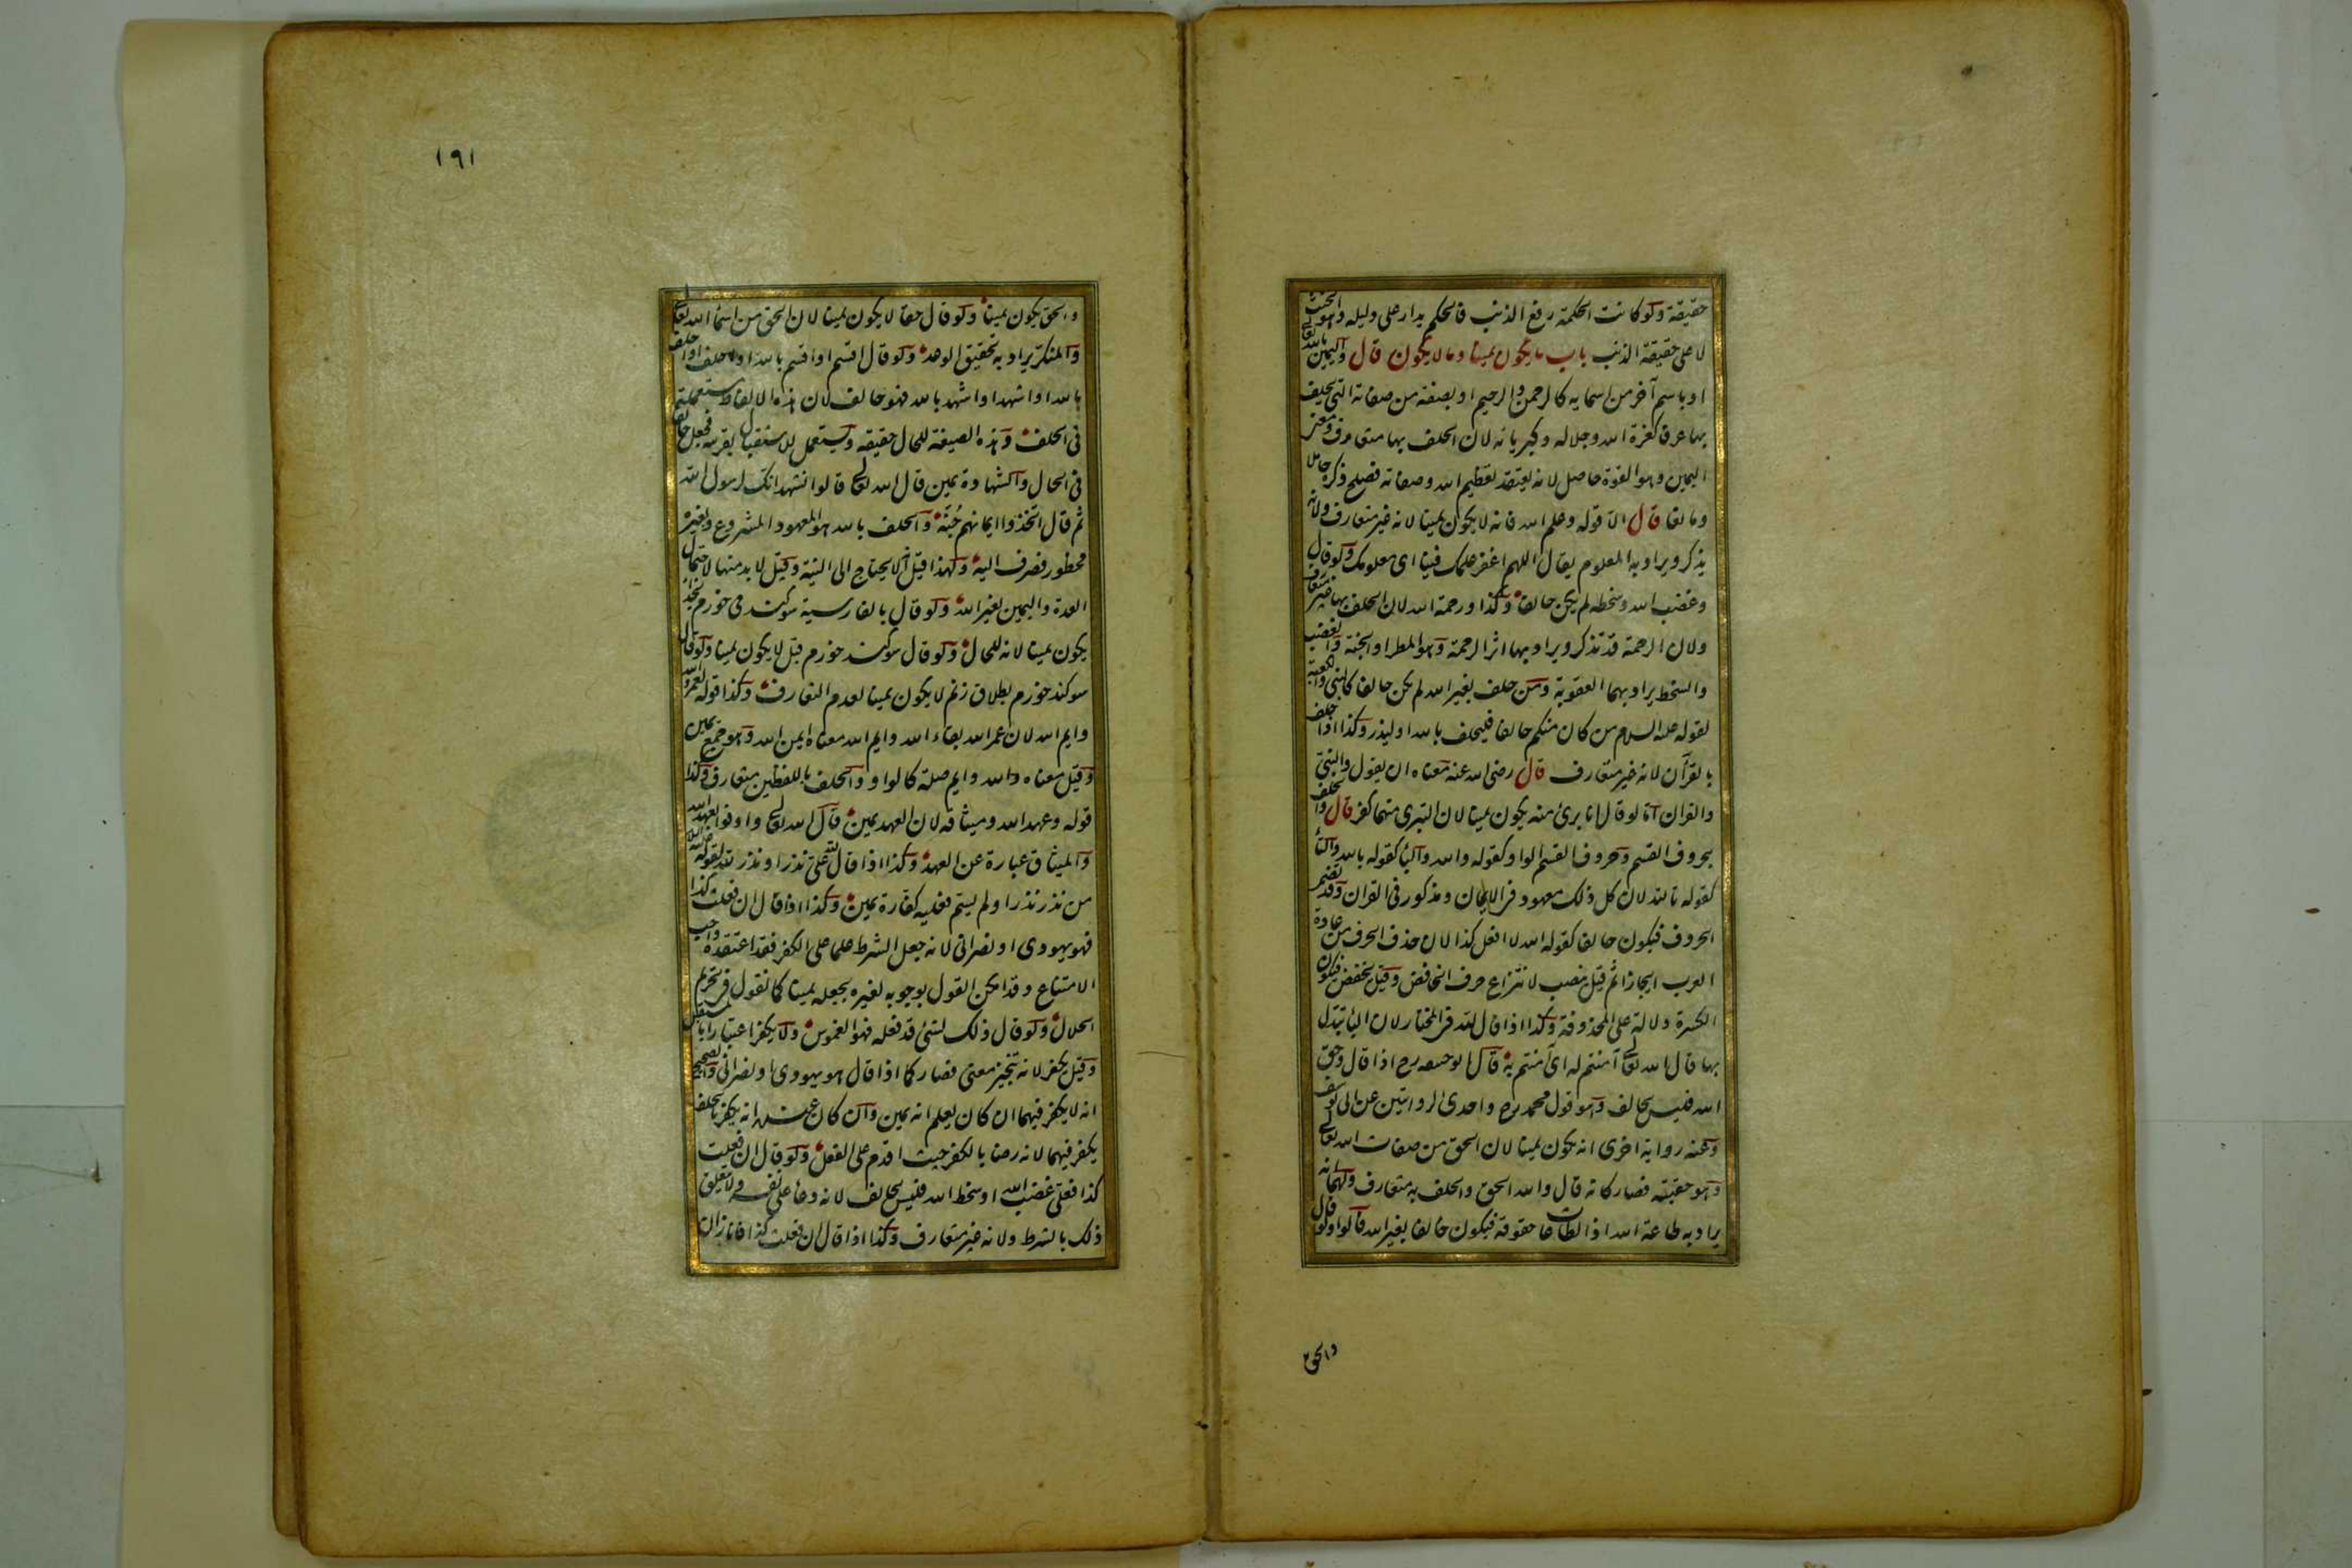 حقيقة ولو كانت الحكمة رفع الذنب فالحكم يدار على دليله وهو الحنث
لا على حقيقة الذنب باب ما يكون يمينا وما لا يكون قال واليمين بالله تعالى
او باسم آخر من اسمايه كالرحمن والرحيم او بصفة من صفاته التى يحلف
بها عرفا كعزة الله وجلاله وكبريائه لان الحلف بها متعارف ومعنى
اليمين وهو القوة حاصل لانه يعتقد تعظيم الله وصفاته فصلح ذكره حاملا
ومانعا قال الا قوله وعلم الله فانه لا يكون يمينا لانه غير متعارف ولانه
يذكر ويراد به المعلوم يقال اللهم اغفر علمك فينا اى معلومك ولو قال
وغضب الله وسخطه لم يكن حالفا وكذا ورحمة الله لان الحلف بها غير متعارف
ولان الرحمة قد تذكر ويراد بها اثر الرحمة وهو المطر او الجنة والغضب
والسخط يراد بهما العقوبة ومن حلف بغير الله لم يكن حالفا كالنبى والكعبة
لقوله عليه السلام من كان منكم حالفا فليحلف بالله او ليذر وكذا اذا حلف
بالقرآن لانه غير متعارف قال رضى الله عنه معناه ان يقول والنبى
والقران اما لو قال انا برئ منه يكون يمينا لان التبرى منهما كفر قال والحلف
بحروف القسم وحروف القسم الواو كقوله والله والباء كقوله بالله والتاء
كقوله تالله لان كل ذلك معهود فى الايمان ومذكور فى القران وقد تضمر
الحروف فيكون حالفا كقوله الله لا افعل كذا لان حذف الحرف من عادة
العرب ايجازا ثم قيل ينصب لانتزاع حرف الخافض وقيل يخفض فيكون
الكسرة دلالة على المحذوفة وكذا اذا قال لله فى المختار لان الباء تبدل
بها قال الله تعالى آمنتم له اى آمنتم به قال ابو حنيفه رح اذا قال وحق
الله فليس بحالف وهو قول محمد رح واحدى الروايتين عن ابى يوسف
وعنه رواية اخرى انه يكون يمينا لان الحق من صفات الله تعالى
وهو حقيته فصار كانه قال والله الحق والحلف به متعارف ولهما انه
يراد به طاعة الله اذ الطاعات حقوقه فيكون حالفا بغير الله قالوا ولو قال
والحق
١٩١
والحق يكون يمينا ولو قال حقا لا يكون يمينا لان الحق من اسماء الله تعالى
والمنكر يراد به تحقيق الوعد ولو قال اقسم او اقسم بالله او احلف او احلف
بالله او اشهد او اشهد بالله فهو حالف لان هذه الالفاظ مستعملة
فى الحلف وهذه الصيغة للحال حقيقه ويستعمل للاستقبال بقرينه فجعل حالفا
فى الحال والشهادة يمين قال الله تعالى قالوا نشهد انك لرسول الله
ثم قال اتخذوا ايمانهم جُنّة والحلف بالله هو المعهود المشروع وبغيره
محظور فصرف اليه ولهذا قيل لا يحتاج الى النية وقيل لا بد منها لاحتمال
العدة واليمين بغير الله ولو قال بالفارسية سوكند مى خورم بخداى
يكون يمينا لانه للحال ولو قال سوكند خورم قيل لا يكون يمينا ولو قال
سوكند خورم بطلاق زنم لا يكون يمينا لعدم التعارف وكذا قوله لعمر الله
وايم الله لان عمر الله بقاء الله وايم الله معناه ايمن الله وهو جمع يمين
وقيل معناه والله وايم صلة كالواو والحلف باللفظين متعارف وكذا
قوله وعهد الله وميثاقه لان العهد يمين قال الله تعالى واوفوا بعهد الله
والميثاق عبارة عن العهد وكذا اذا قال على نذر او نذر الله لقوله عليه السلام
من نذر نذرا ولم يسم فعليه كفارة يمين وكذا اذا قال ان فعلت كذا
فهو يهودى او نصرانى لانه جعل الشرط علما على الكفر فقد اعتقده واجب
الامتناع وقد امكن القول بوجوبه لغيره بجعله يمينا كما نقول فى تحريم
الحلال ولو قال ذلك لشئ قد فعله فهو الغموس ولا يكفر اعتبارا بالمستقبل
وقيل يكفر لانه تنجيز معنى فصار كما اذا قال هو يهودى او نصرانى والصحيح
انه لا يكفر فيهما ان كان يعلم انه يمين وان كان عنده انه يكفر بالحلف
يكفر فيهما لانه رضا بالكفر حيث اقدم على الفعل ولو قال ان فعلت
كذا فعلى غضب الله او سخط الله فليس بحالف لانه دعا على نفسه ولا يتعلق
ذلك بالشرط ولانه غير متعارف وكذا اذا قال ان فعلت كذا فانا زان